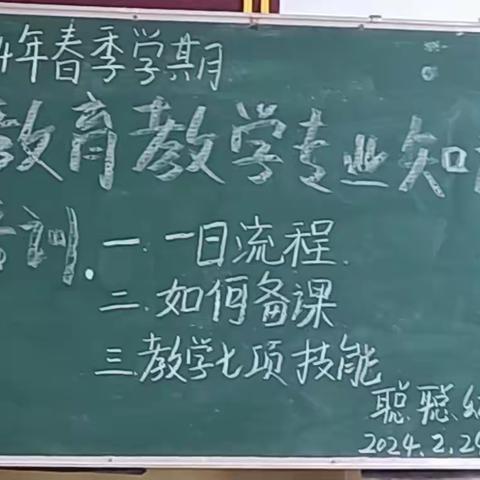 4年春季学期
教育教学专业知
培训.
一.一日流程.
二.如何备课
三.教学七项技能
聪聪幼
2024.2.2